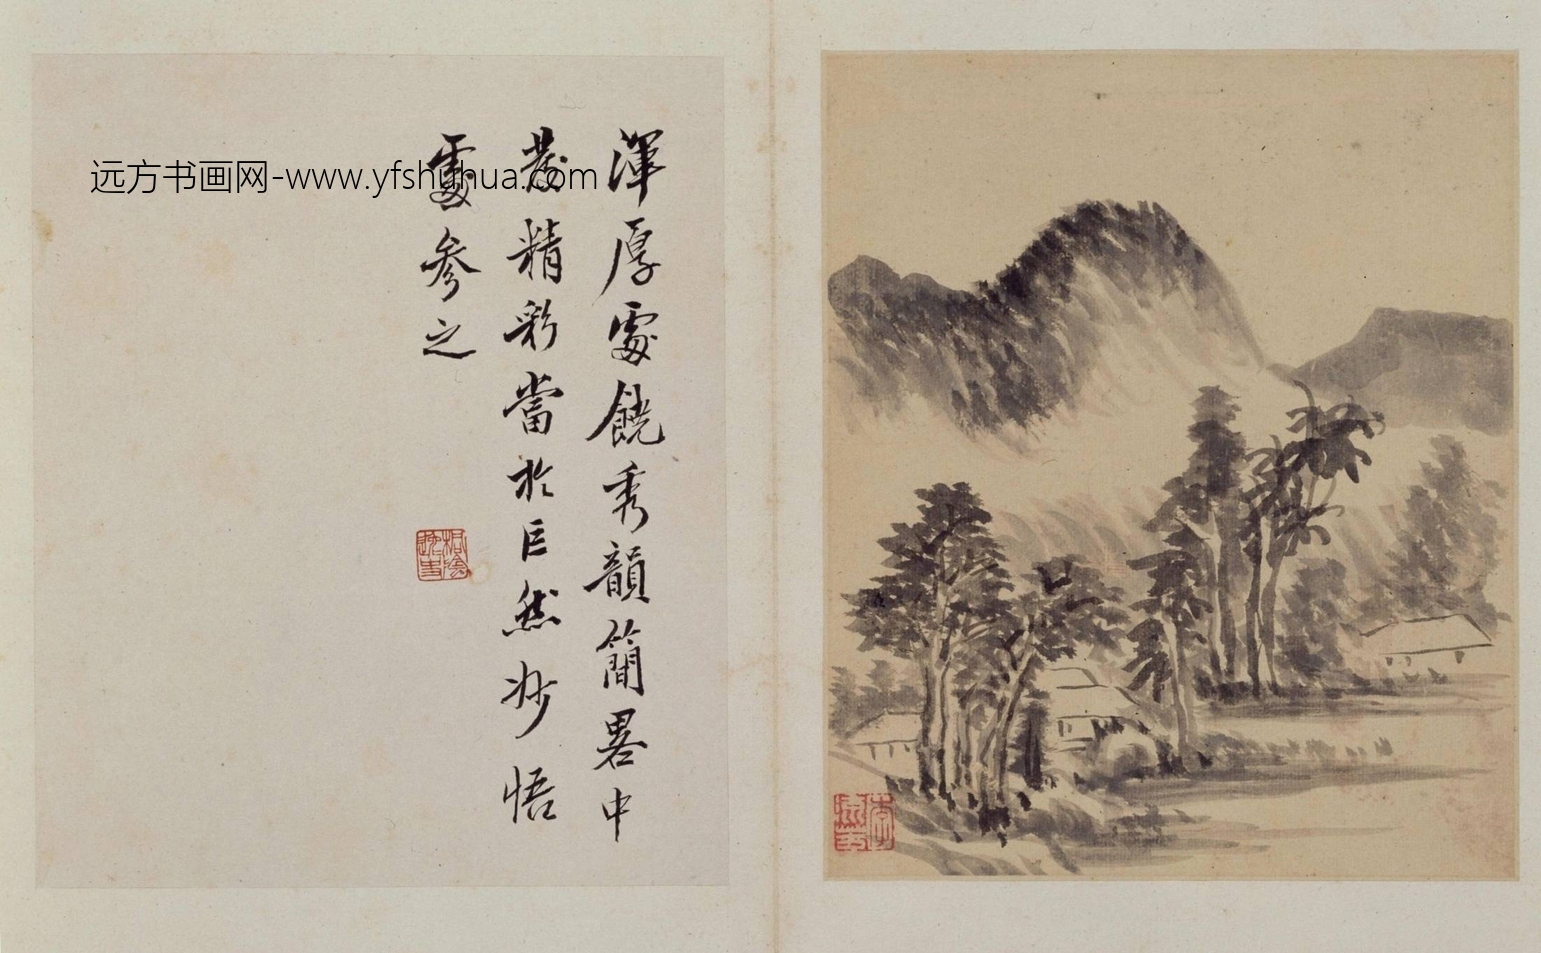 渾厚處饒秀韻簡畧中
發精彩當於巨然妙悟
處参之
远方书画网-www.yfshuhua.com